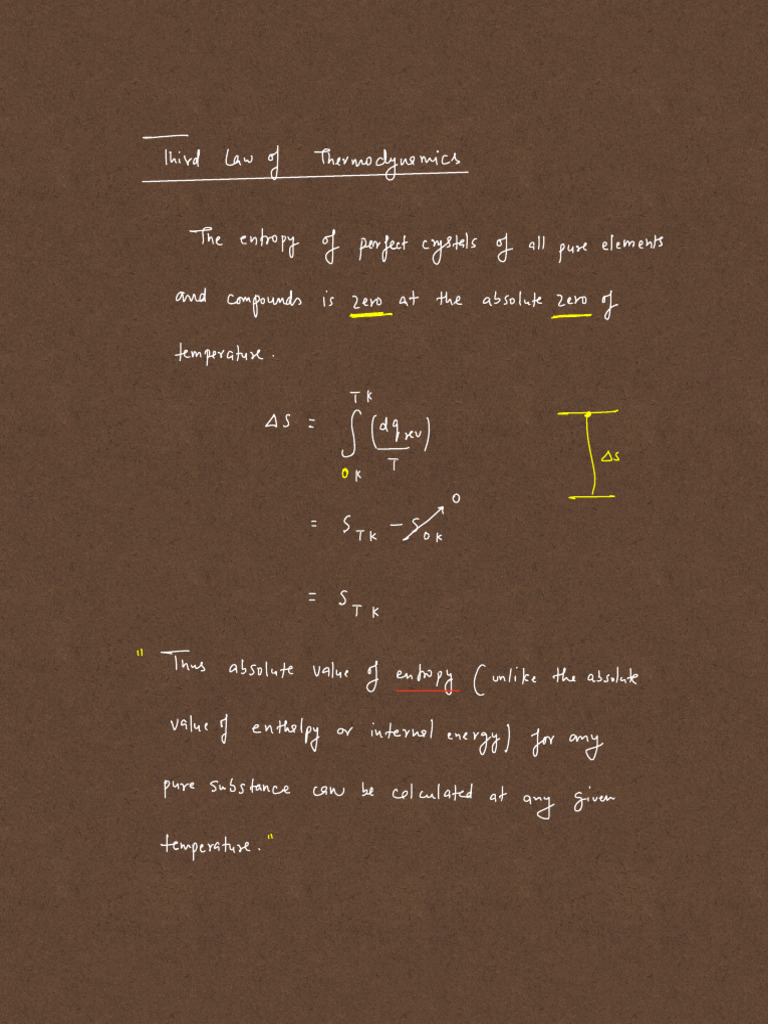 Third Law of Thermodynamics
The entropy of perfect crystals of all pure elements
and compounds is zero at the absolute zero of
temperature.
T K
ΔS = ∫ (dq_rev / T)
0 K
ΔS
= S_{T K} - S_{0 K} 0
= S_{T K}
" Thus absolute value of entropy (unlike the absolute
value of enthalpy or internal energy) for any
pure substance can be calculated at any given
temperature. "